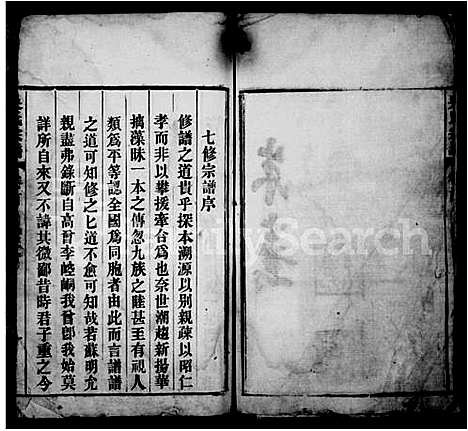 七修宗譜序
修譜之道貴乎探本溯源以別親疏以昭仁
孝而非以攀援牽合為也奈世潮趨新揚華
摛藻昧一本之傳忽九族之睦甚至有視人
類為平等認全國為同胞者由此而言譜譜
之道可知修之匕道不愈可知哉若蘇明允
親盡弗錄斷自高曾李崆峒我曾卽我始莫
詳所自來又不諱其微鄙昔時君子重之今
FamilySearch